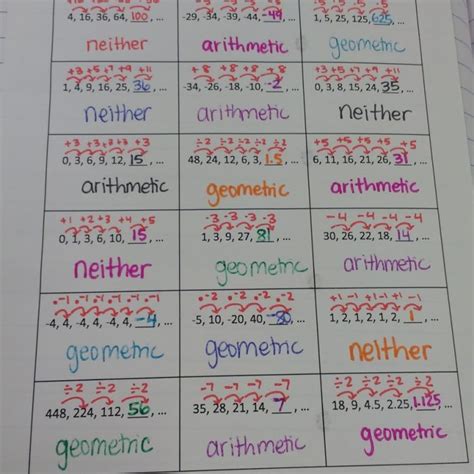 4, 16, 36, 64, 100, ...
neither
-29, -34, -39, -44, -49, ...
arithmetic
1, 5, 25, 125, 625, ...
geometric
+3 +5 +7 +9 +11
1, 4, 9, 16, 25, 36, ...
neither
+8 +8 +8 +8
-34, -26, -18, -10, -2, ...
arithmetic
+3 +5 +7 +9 +11
0, 3, 8, 15, 24, 35, ...
neither
+3 +3 +3 +3 +3
0, 3, 6, 9, 12, 15, ...
arithmetic
÷2 ÷2 ÷2 ÷2 ÷2
48, 24, 12, 6, 3, 1.5, ...
geometric
+5 +5 +5 +5 +5
6, 11, 16, 21, 26, 31, ...
arithmetic
+1 +2 +3 +4 +5
0, 1, 3, 6, 10, 15, ...
neither
-3 -3 -3 -3
1, 3, 9, 27, 81, ...
geometric
-4 -4 -4 -4
30, 26, 22, 18, 14, ...
arithmetic
·-1 ·-1 ·-1 ·-1 ·-1 ·-1
-4, 4, -4, 4, -4, 4, -4, ...
geometric
·-2 ·-2 ·-2 ·-2
-5, 10, -20, 40, -80, ...
geometric
+1 -1 +1 -1 +1 -1
1, 2, 1, 2, 1, 2, 1, ...
neither
÷2 ÷2 ÷2
448, 224, 112, 56, ...
geometric
-7 -7 -7 -7
35, 28, 21, 14, 7, ...
arithmetic
÷2 ÷2 ÷2 ÷2
18, 9, 4.5, 2.25, 1.125, ...
geometric